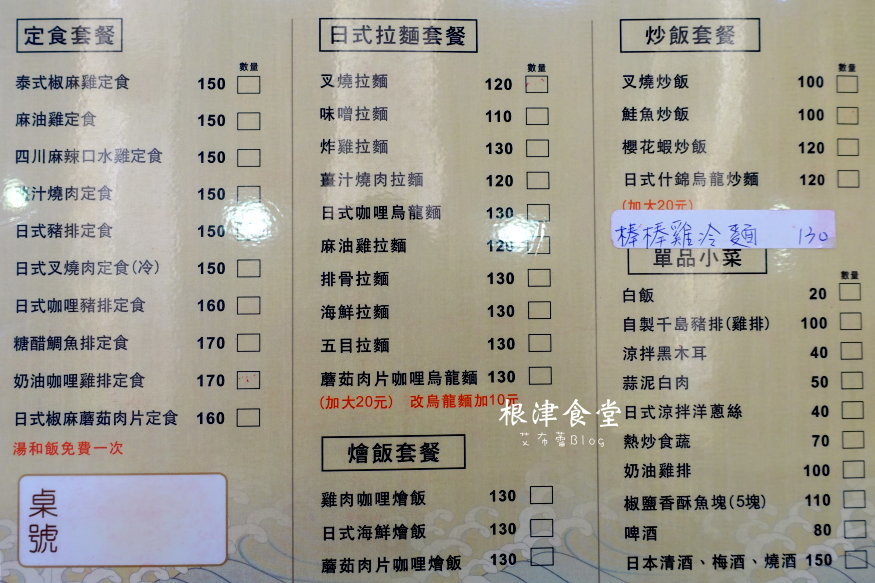 定食套餐
數量
泰式椒麻雞定食 150
麻油雞定食 150
四川麻辣口水雞定食 150
汁燒肉定食 150
日式豬排定食 150
日式叉燒肉定食(冷) 150
日式咖哩豬排定食 160
糖醋鯛魚排定食 170
奶油咖哩雞排定食 170
日式椒麻蘑菇肉片定食 160
湯和飯免費一次
桌號
日式拉麵套餐
數量
叉燒拉麵 120
味噌拉麵 110
炸雞拉麵 130
薑汁燒肉拉麵 120
日式咖哩烏龍麵 130
麻油雞拉麵 120
排骨拉麵 130
海鮮拉麵 130
五目拉麵 130
蘑菇肉片咖哩烏龍麵 130
(加大20元) 改烏龍麵加10元
根津食堂
艾布蕾Blog
燴飯套餐
雞肉咖哩燴飯 130
日式海鮮燴飯 130
蘑菇肉片咖哩燴飯 130
炒飯套餐
數量
叉燒炒飯 100
鮭魚炒飯 100
櫻花蝦炒飯 120
日式什錦烏龍炒麵 120
(加大20元)
棒棒雞冷麵 130
單品小菜
數量
白飯 20
自製千島豬排(雞排) 100
涼拌黑木耳 40
蒜泥白肉 50
日式涼拌洋蔥絲 40
熱炒食蔬 70
奶油雞排 100
椒鹽香酥魚塊(5塊) 110
啤酒 80
日本清酒、梅酒、燒酒 150